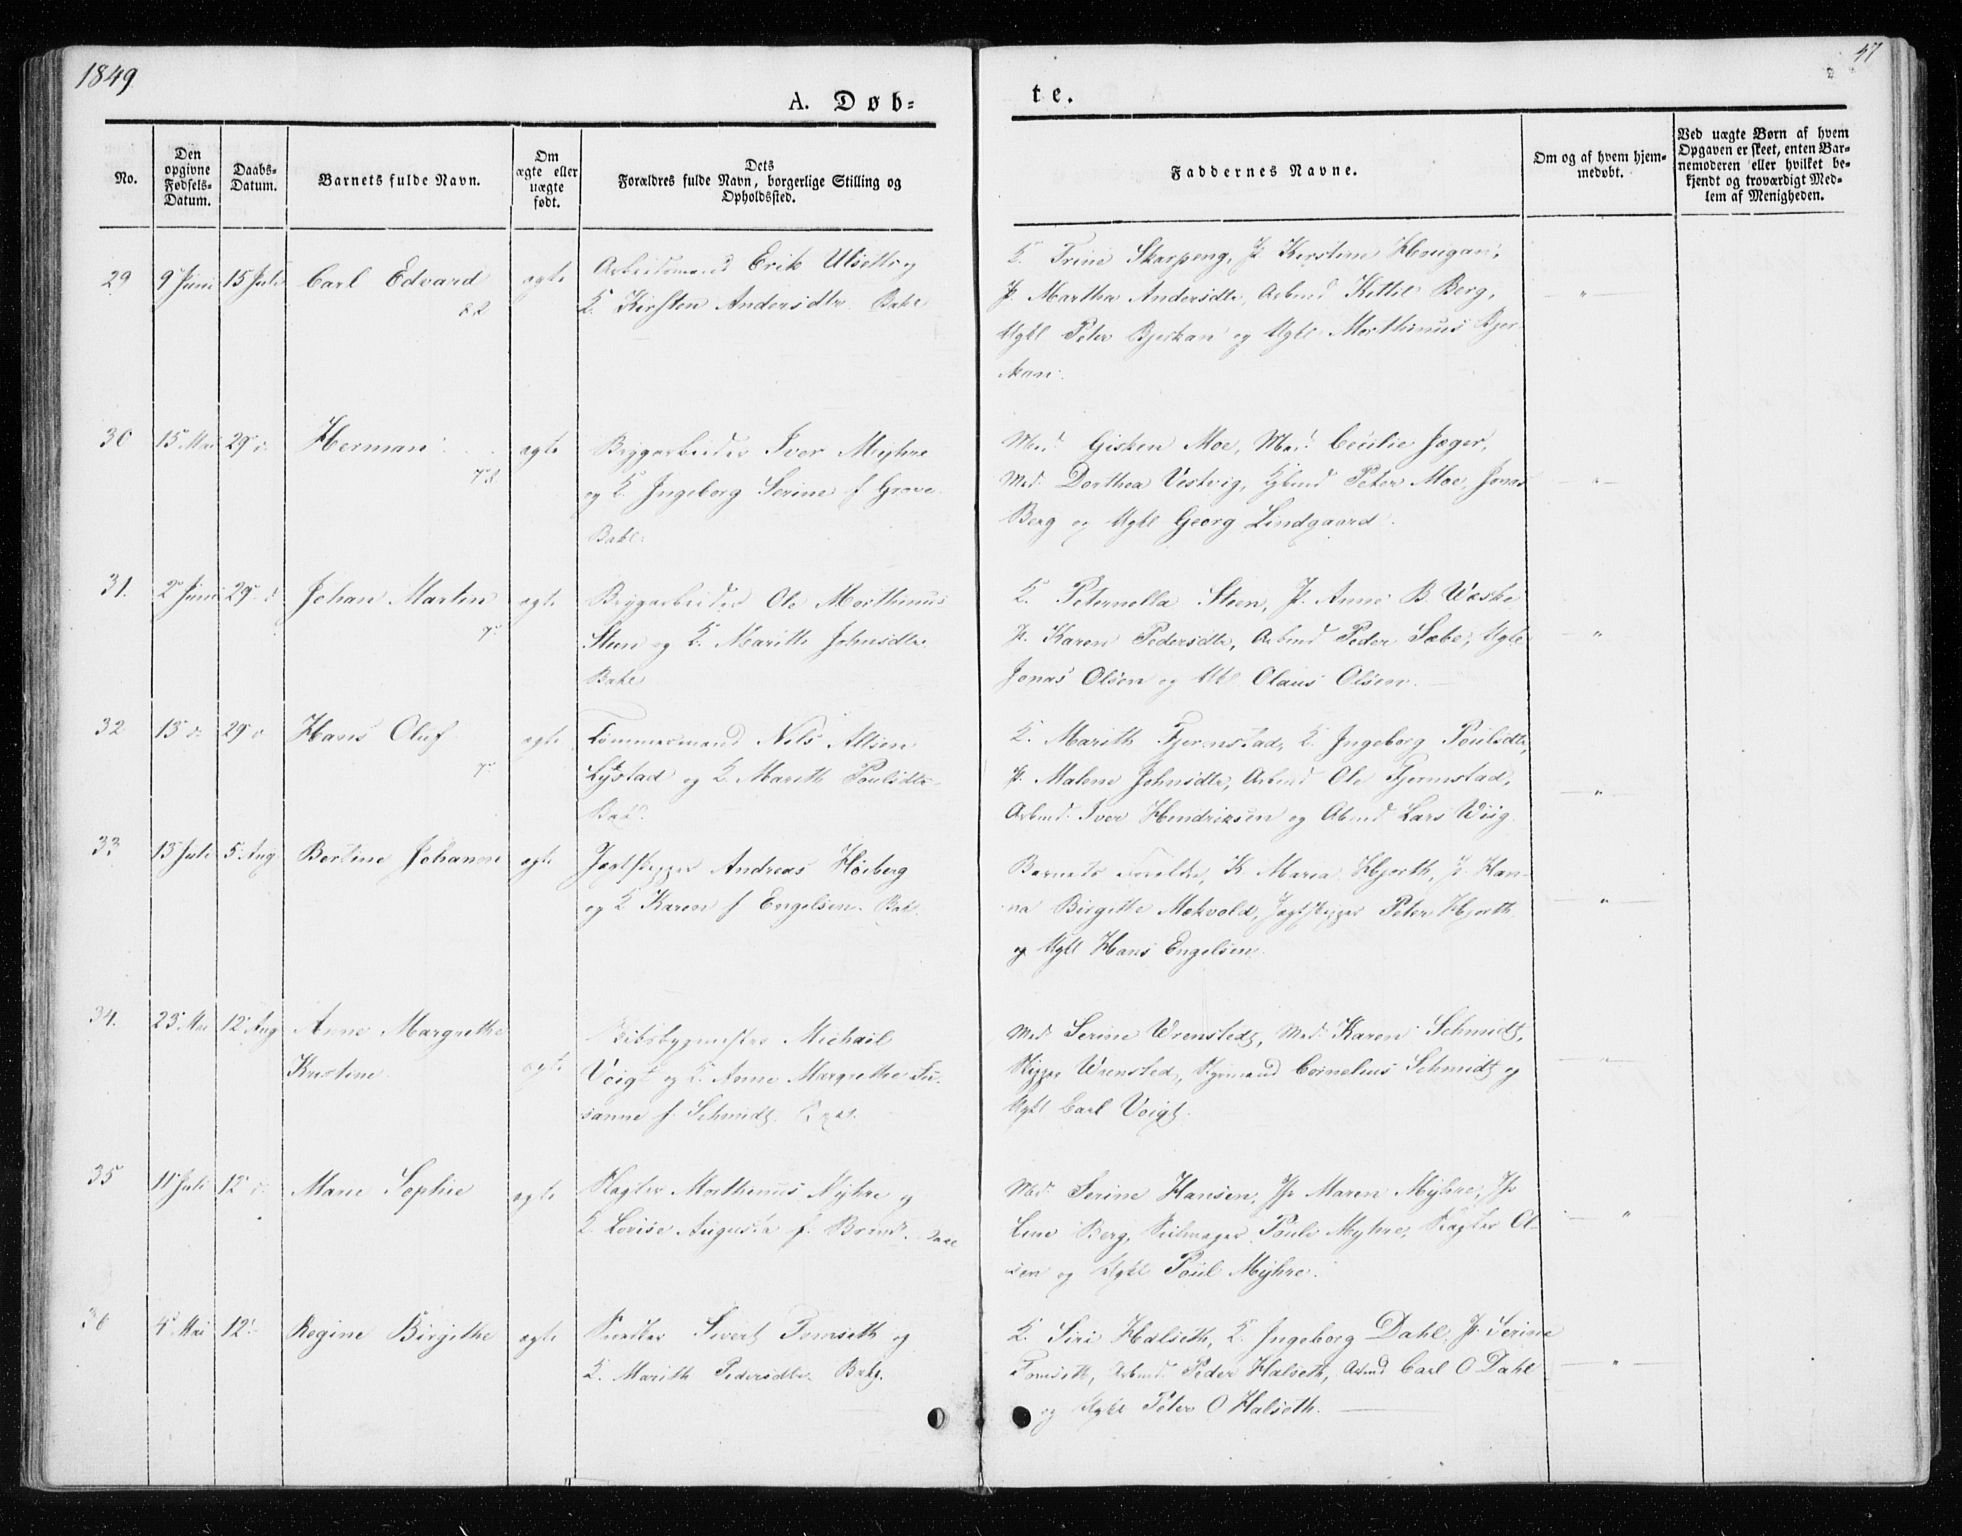 1849
47
A. Døb-
te.
No.
Den opgivne Fødsels-Datum.
Daabs-Datum.
Barnets fulde Navn.
Om ægte eller uægte født.
Dets Forældres fulde Navn, borgerlige Stilling og Opholdssted.
Faddernes Navne.
Om og af hvem hjem-medøbt.
Ved uægte Børn af hvem Opgaven er skeet, enten Bar-nemoderen eller hvilket be-kjendt og troværdigt Med-lem af Menigheden.
29 9 Juni 15 Juli Carl Edvard ægte Arbeidsmand Erik Ulseth og
K. Kirsten Andersdtr. Bakl
K. Trine Skarpeng, P. Kirstine Haugan,
P. Martha Andersdtr, Arbmd Kittil Berg,
Ugkl Peter Bjerkan og Ugkl Morthinus Bjer-
kan.
30 15 Mai 29 d. Herman ægte Bryggarbeider Iver Myhre
og K. Ingeborg Serine f. Grove
Bakl.
Mad. Gisken Moe, Mad. Cecilie Jæger,
Mad. Dorthea Vestvig, Peter Moe, Jonas
Berg og Ugkl Georg Lindgaard.
31. 2 Juni 29 d. Johan Martin ægte Bryggarbeider Ole Morthinus
Steen og K. Marith Johnsdtr.
Bakl
K. Peternella Steen, P. Anne B. Weske
P. Karen Pedersdtr, Arbmd Peder Sæbe, Ugkl
Jonas Olsen og Claus Olsen.
32 15 d. 29 d Hans Oluf ægte Tømmermand Nils Allsen
Lystad og K. Marith Poulsdtr
Bakl.
K. Marith Fjermstad, K. Ingeborg Poulsdtr,
P. Malene Johnsdtr, Arbmd Ole Fjermstad,
Arbmd. Iver Hendriksen og Abmd Lars Wiig.
33 13 Juli 5 Aug Bertine Johanne ægte Jagtskipper Andreas Høiberg
og K Karen f Engelsen. Bakl.
Barnets Forældre, K. Maria Hjorth, P. Han-
na Birgitte Mokvold, Jagtskipper Peter Hjorth
og Ugkl Hans Engelsen.
34. 23 Mai 12 Aug Anne Margrethe ægte Skibsbygmester Michail
Kristine. Voigt og K. Anne Margrethe Su-
sanne f. Schmidt.
Mad Serine Wrensted, Mad. Karen Schmidt,
Skipper Wrensted, Styrmand Cornelius Schmidt og
Ugkl Carl Voigt.
35 11 Juli 12 d. Marie Sophie ægte Slagter Morthinus Myhre og
K. Lovise Augusta f. Brand.
Mad. Serine Hansen, Jfr Maren Myhre, Jfr
Line Berg, Seilmager Poul Myhre, Slagter Ol-
sen og Ugkl Poul Myhre.
36 4 Mai 12 Regine Birgithe ægte Snedker Sivert Tomseth og
K. Marith Pedersdtr. Bakl.
K. Siri Halseth, K. Ingeborg Dahl, P. Serine
Tomseth, Arbmd. Peder Halseth, Arbmd Carl O Dahl
og Ugkl Peter O Halseth.